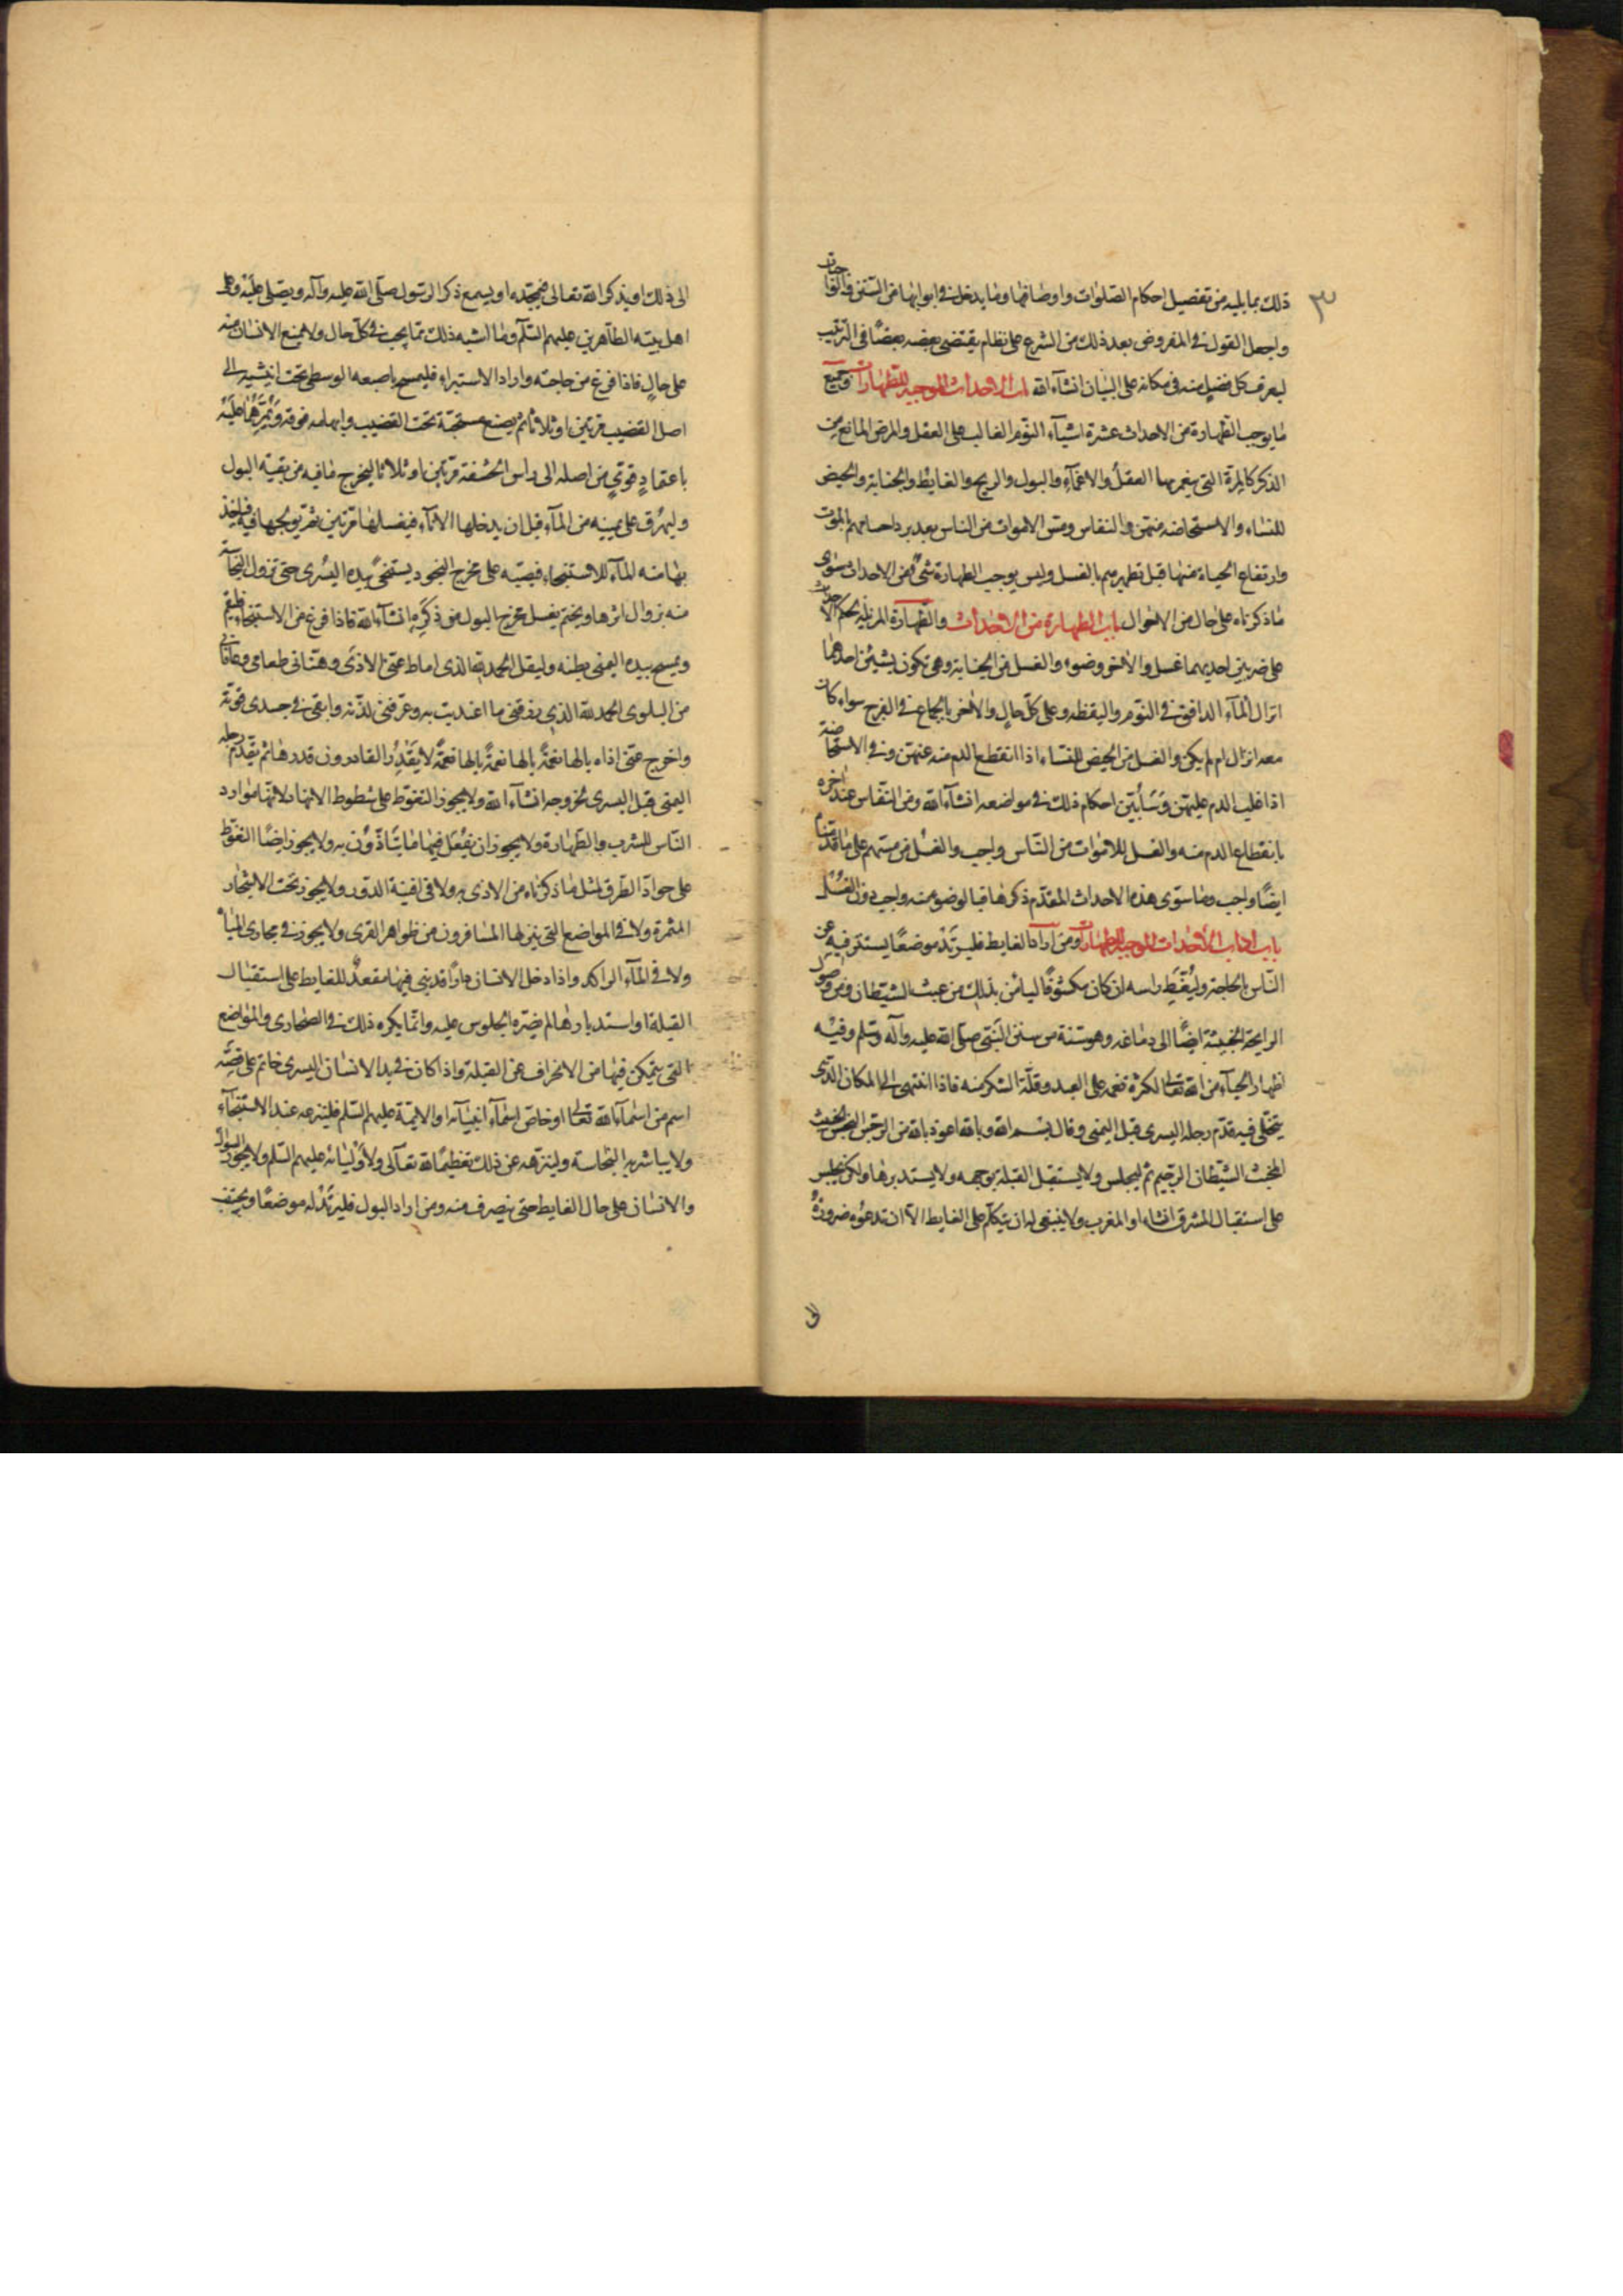 ٣
ذلك بما يليه من تفصيل احكام الصلوات واوصافها وما يدخل في ابوابها من السنن والواجبات
واجعل القول في المفروض بعد ذلك من الشرع على نظام يقتضى بعضه بعضًا فى الترتيب
ليعرف كل فصل منه فى مكانه على البيان انشاء الله باب الاحداث الموجبه للطهارات وجميع
ما يوجب الطهارة من الاحداث عشرة اشيآء النوم الغالب على العقل والمرض المانع من
الذكر كالمرة التي ينغمر بها العقل والاغمآء والبول والريح والغايط والجنابة والحيض
للنساء والاستحاضه منهن والنفاس ومس الاموات من الناس بعد برد اجسامهم بالموت
وارتفاع الحياة منها قبل تطهيرهم بالغسل وليس يوجب الطهارة شئ من الاحداث سوى
ما ذكرناه على حال من الاحوال باب الطهارة من الاحداث والطهارة المزيلة لحكم الاحداث
على ضربين احديهما غسل والاخر وضوء والغسل من الجنابة وهى تكون بشيئن احدهما
انزال المآء الدافق في النوم واليقظه وعلى كل حال والاخر بالجماع في الفرج سواء كان
معه انزال ام لم يكن والغسل من الحيض للنساء اذا انقطع الدم منه عنهن وفي الاستحاضة
اذا غلب الدم عليهن وسأبين احكام ذلك في مواضعه انشآء الله ومن النفاس عند اخره
بانقطاع الدم منه والغسل للاموات من الناس واجب والغسل من مسهم على ما قدمناه
ايضًا واجب وما سوى هذه الاحداث المقدم ذكرها فالوضوء منه واجب دون الغسل
باب اداب الاحداث الموجبه للطهارات ومن اراد الغايط فليرتد موضعًا يستتر فيه عن
الناس بالحاجة وليغط راسه ان كان مكشوفًا ليأمن بذلك من عبث الشيطان ومن وصول
الرايحة الخبيثة ايضًا الى دماغه وهو سنة من سنن النبي صلى الله عليه وآله وسلم وفيه
اظهار الحيآء من الله تعالى لكثرة نعمه على العبد وقلة الشكر منه فاذا انتهى الى المكان الذى
يتخلى فيه قدم رجله اليسرى قبل اليمنى وقال بسم الله وبالله اعوذ بالله من الرجس النجس الخبيث
المخبث الشيطان الرجيم ثم ليجلس ولا يستقبل القبلة بوجهه ولا يستدبرها ولكن يجلس
على استقبال المشرق انشاء او المغرب ولا ينبغى له ان يتكلم على الغايط الا ان تدعوه ضرورة
الى
الى ذلك او يذكر الله تعالى فيمجده او يسمع ذكر الرسول صلى الله عليه وآله ويصلى عليه وعلى
اهل بيته الطاهرين عليهم السلم وما اشبه ذلك مما يجب في كل حال ولا يمنع الانسان منه
على حال فاذا فرغ من حاجته واراد الاستبراء فليمسح باصبعه الوسطى تحت انثييه الى
اصل القضيب مرتين او ثلاثا ثم يضع مسبحته تحت القضيب وابهامه فوقه ويمرهما عليه
باعتماد قوى من اصله الى راس الحشفة مرتين او ثلاثا ليخرج ما فيه من بقية البول
وليهرق على يمينه من المآء قبل ان يدخلها الانآء فيغسلها مرتين ثم يولجها فيه فياخذ
بها منه المآء للاستنجاء فيصبه على مخرج النجو ويستنجى بيده اليسرى حتى تزول النجاسة
منه بزوال اثرها ويختم بغسل مخرج البول من ذكره انشآء الله فاذا فرغ من الاستنجاء فليقم
ويمسح بيده اليمنى بطنه وليقل الحمد لله الذى اماط عنى الاذى وهنانى طعامى وعافانى
من البلوى الحمد لله الذي رزقنى ما اغتديت به وعرفنى لذته وابقى في جسدى قوته
واخرج عنى اذاه يالها نعمة يالها نعمة يالها نعمة لا يقدر القادرون قدرها ثم يقدم رجله
اليمنى قبل اليسرى لخروجه انشآء الله ولا يجوز التغوط على شطوط الانهار لانها موارد
الناس للشرب والطهارة ولا يجوز ان يفعل فيها ما يتاذون به ولا يجوز ايضًا التغوط
على جواد الطرق لمثل ما ذكرناه من الاذى به ولا فى افنية الدور ولا يجوز تحت الاشجار
المثمرة ولا في المواضع التى ينزلها المسافرون من ظواهر القرى ولا يجوز في مجارى المياه
ولا فى المآء الراكد واذا دخل الانسان دارًا قد بنى فيها مقعد للغايط على استقبال
القبلة او استدبارها لم يضره الجلوس عليه وانما يكره ذلك في الصحارى والمواضع
التى يتمكن فيها من الانحراف عن القبلة واذا كان في يد الانسان اليسرى خاتم على فصه
اسم من اسمآء الله تعالى او خاص اسمآء انبيآئه او الائمة عليهم السلم فلينزعه عند الاستنجآء
ولا يباشر به النجاسة ولينزهه عن ذلك تعظيمًا لله تعالى ولاوليائه عليهم السلم ولا يجوز السواك
والانسان على حال الغايط حتى ينصرف منه ومن اراد البول فليرتد له موضعًا ويجتنب